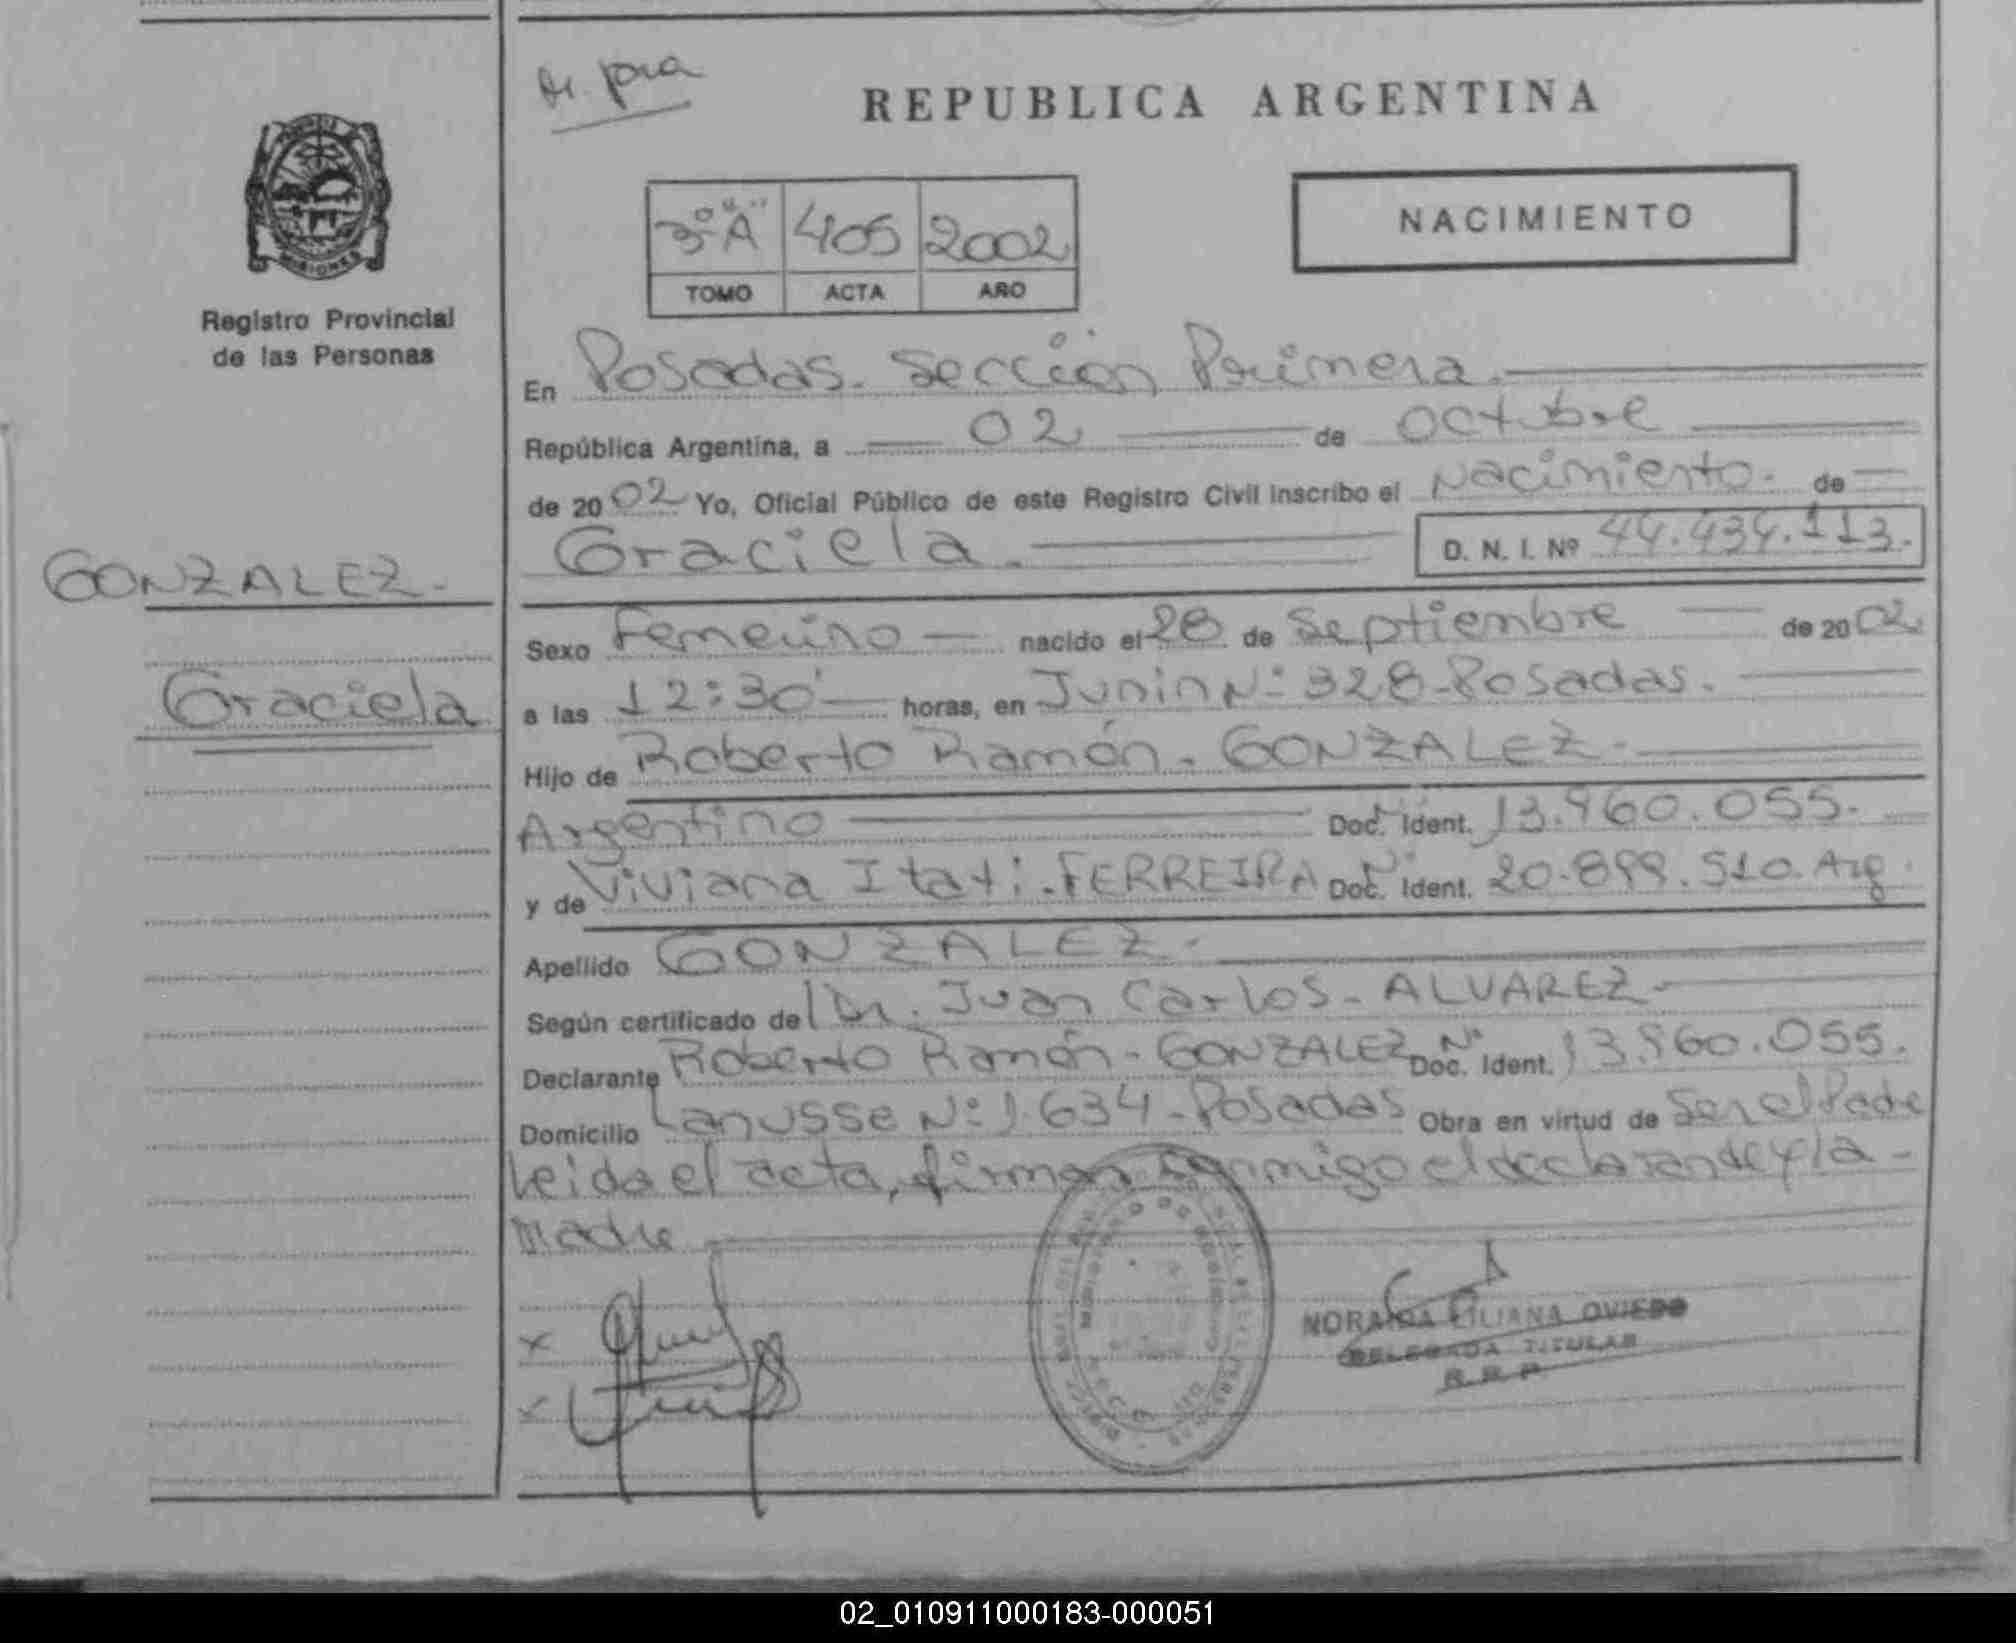 REPUBLICA ARGENTINA
MISIONES
Registro Provincial
de las Personas
3º "A" 405 2002
TOMO ACTA AÑO
NACIMIENTO
En Posadas. Sección Primera.
República Argentina, a 02 de octubre
de 2002 Yo, Oficial Público de este Registro Civil inscribo el Nacimiento. de
Graciela. D. N. I. Nº 44.434.113.
GONZALEZ.
Graciela
Sexo Femenino nacido el 28 de Septiembre de 2002
a las 12:30' horas, en Junin Nº 328-Posadas.
Hijo de Roberto Ramón. GONZALEZ.
Argentino Doc. Ident. 13.960.055.
y de Viviana Itati. FERREIRA Doc. Ident. 20.899.510. Arg.
Apellido GONZALEZ.
Según certificado del Dr. Juan Carlos - ALVAREZ.
Declarante Roberto Ramón - GONZALEZ Nº Doc. Ident. 13.960.055.
Domicilio Lanusse Nº 1.634-Posadas Obra en virtud de Ser el Padre
Leida el acta, firman conmigo el declarante y la
Madre
NORA LILIANA OVIEDO
DELEGADA TITULAR
R.R.P
02_010911000183-000051